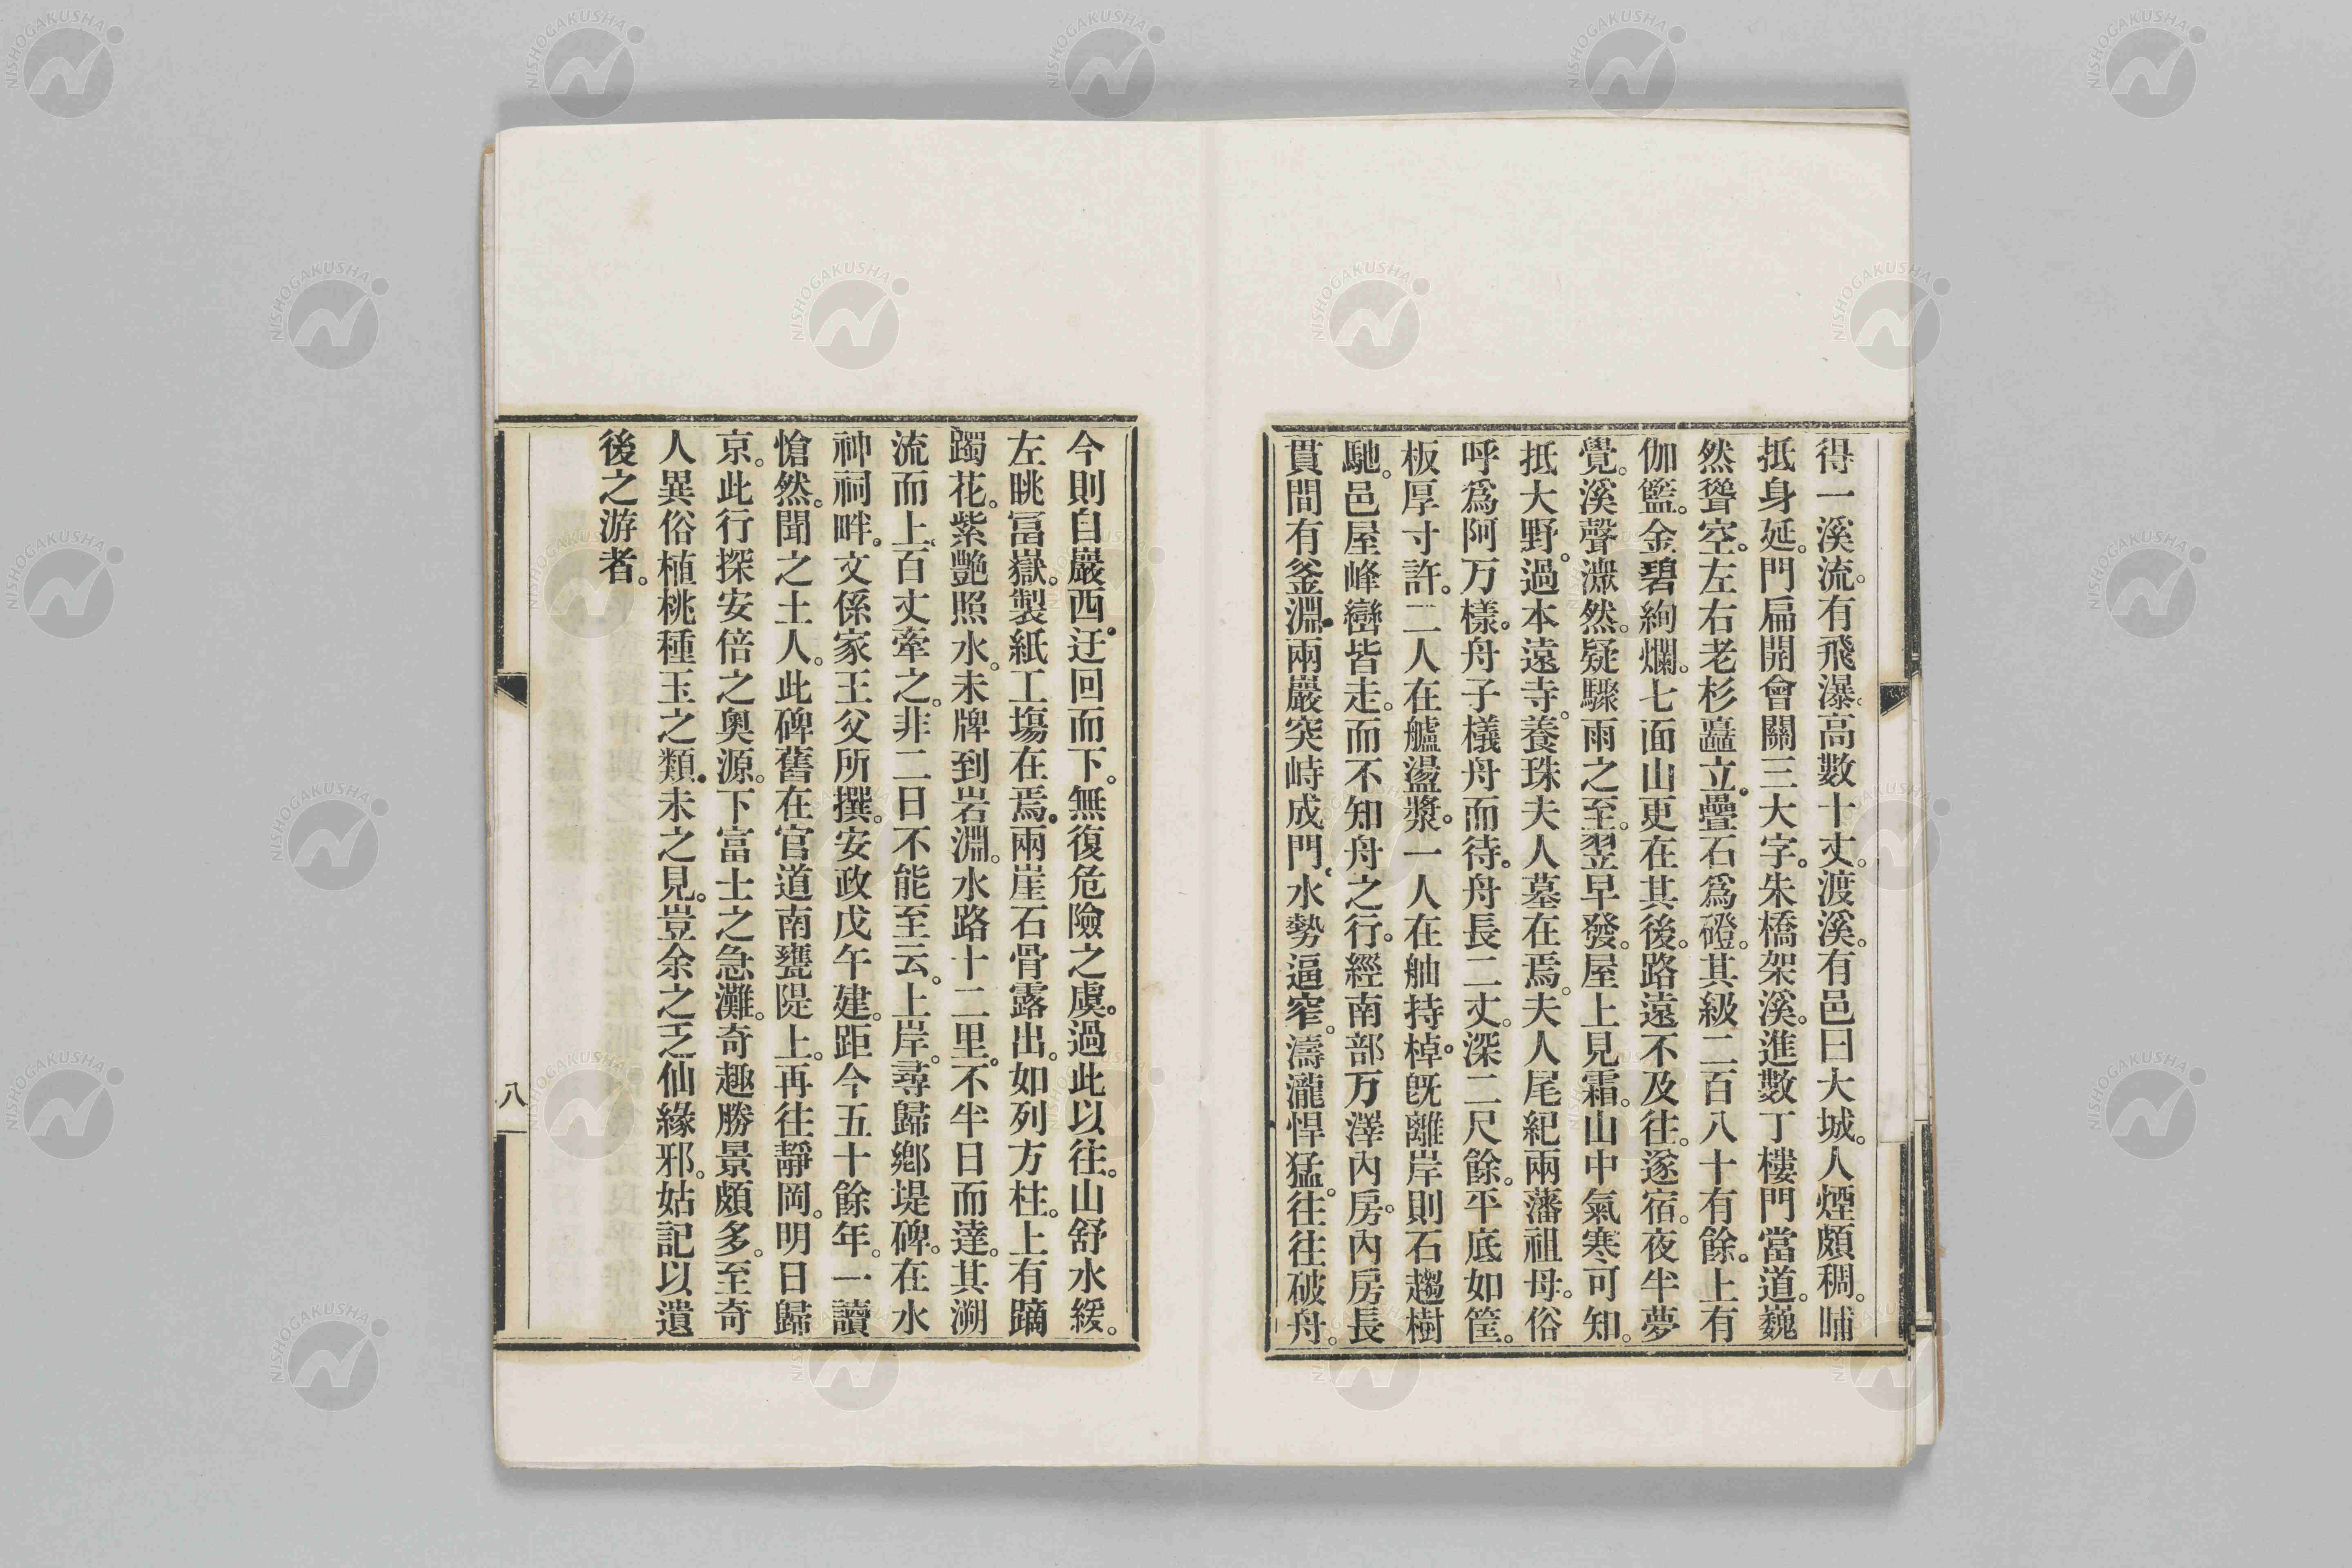 得一溪流。有飛瀑。高數十丈。渡溪。有邑曰大城。人煙頗稠。晡
抵身延。門扁開會關三大字。朱橋架溪。進數丁樓門當道。巍
然聳空。左右老杉矗立。疊石爲磴。其級二百八十有餘。上有
伽籃。金碧絢爛。七面山更在其後。路遠不及往。遂宿。夜半夢
覺。溪聲濺然。疑驟雨之至。翌早發。屋上見霜。山中氣寒可知。
抵大野。過本遠寺。養珠夫人墓在焉。夫人尾紀兩藩祖母。俗
呼爲阿万樣。舟子檥舟而待。舟長二丈。深二尺餘。平底如筐。
板厚寸許。二人在艫盪槳。一人在舳持棹。既離岸則石趨樹
馳。邑屋峰巒皆走。而不知舟之行。經南部万澤內房。內房長
貫間有釜淵。兩巖突峙成門。水勢逼窄。濤瀧悍猛。往往破舟。
今則自巖西。迂回而下。無復危險之虞。過此以往。山舒水緩。
左眺冨嶽。製紙工塲在焉。兩崖石骨露出。如列方柱。上有躑
躅花。紫艷照水。未牌到岩淵。水路十二里。不半日而達。其溯
流而上。百丈牽之。非二日不能至云。上岸。尋歸鄕堤碑。在水
神祠畔。文係家王父所撰。安政戊午建。距今五十餘年。一讀
愴然。聞之土人。此碑舊在官道南甕隄上。再往靜岡。明日歸
京。此行探安倍之奧源。下富士之急灘。奇趣勝景頗多。至奇
人異俗植桃種玉之類。未之見。豈余之乏仙緣邪。姑記以遺
後之游者。
八
NISHOGAKUSHA